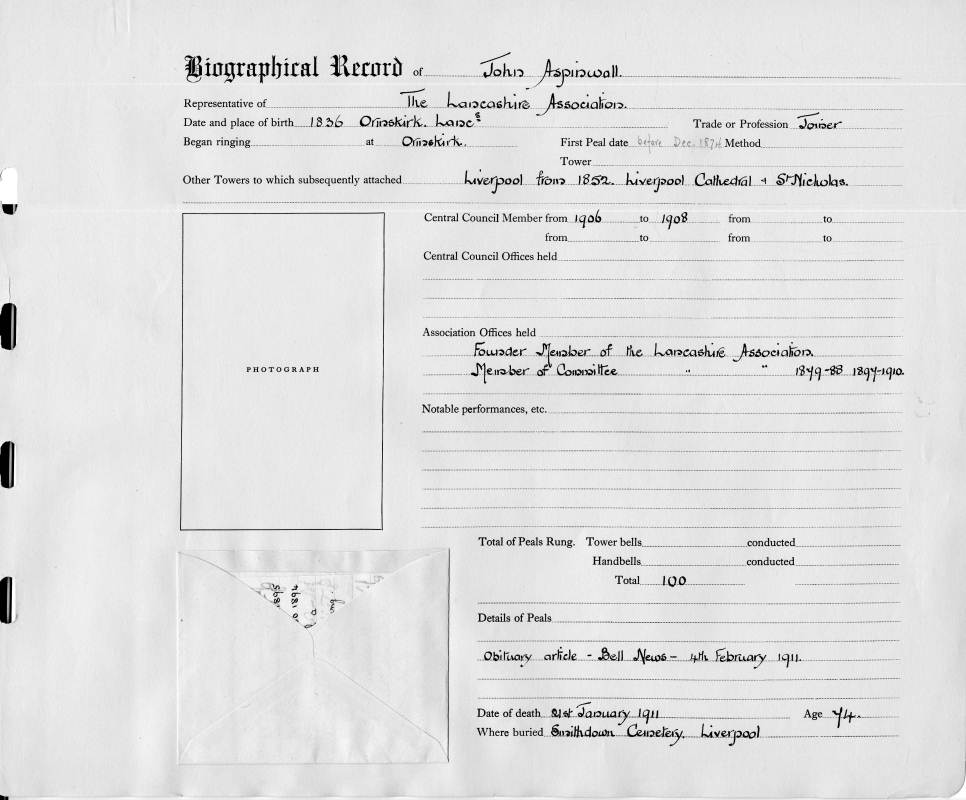 Biographical Record of John Aspinwall.
Representative of The Lancashire Association.
Date and place of birth 1836 Ormskirk. Lancs Trade or Profession Joiner
Began ringing at Ormskirk. First Peal date before Dec. 1874 Method
Tower
Other Towers to which subsequently attached Liverpool from 1852. Liverpool Cathedral + St Nicholas.
Central Council Member from 1906 to 1908 from to
from to from to
Central Council Offices held
Association Offices held
Founder Member of the Lancashire Association.
Member of Committee " " 1879-88 1897-1910.
PHOTOGRAPH
Notable performances, etc.
Total of Peals Rung. Tower bells conducted
Handbells conducted
Total 100
Details of Peals
Obituary article - Bell News - 4th February 1911.
Date of death 21st January 1911 Age 74.
Where buried Smithdown Cemetery, Liverpool